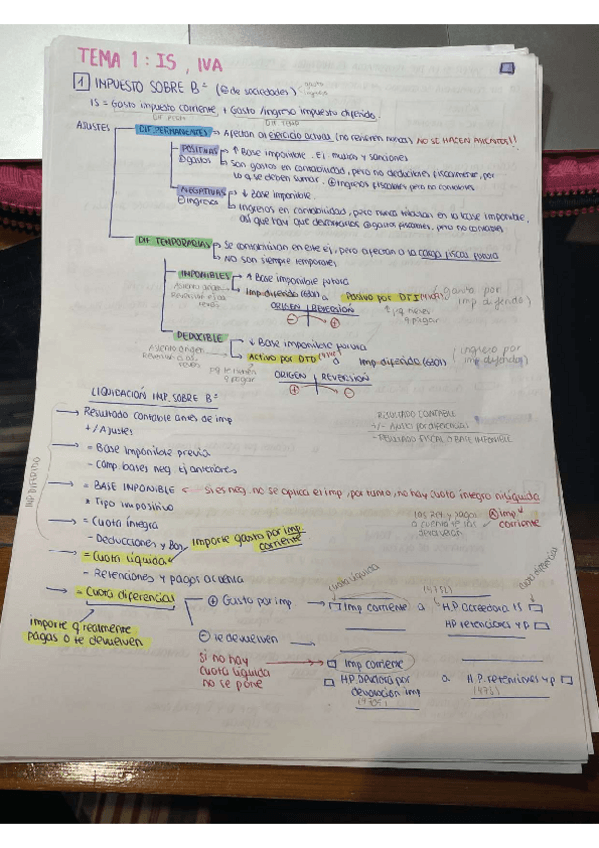 TEMA 1: IS, IVA
1 IMPUESTO SOBRE Bº (de sociedades)
IS = Gasto impuesto corriente + Gasto/ingreso impuesto diferido
AJUSTES
DIF PERMANENTES → Afectan al ejercicio actual (no revierten nunca) NO SE HACEN ASIENTOS!!
POSITIVAS ↑ Base imponible. Ej. multas y sanciones
gastos Son gastos en contabilidad, pero no deducibles fiscalmente, por
lo q se deben sumar. ⊕ Ingresos fiscales pero no contables
NEGATIVAS ↓ Base imponible
ingresos Ingresos en contabilidad, pero nunca tributan en la base imponible,
así que hay que descontarlos gastos fiscales, pero no contables
DIF TEMPORARIAS → Se contabilizan en este ej, pero afectan a la carga fiscal futura
NO son siempre temporales
IMPONIBLES ↑ Base imponible futura
Asiento origen Imp diferido (6301) a Pasivo por DTI (479) (gasto por imp diferido)
Reversión al revés
ORIGEN | REVERSIÓN
⊖ ⊕
↑ pq tienes q pagar
DEDUCIBLE ↓ Base imponible futura
Asiento origen Activo por DTD a Imp diferido (6301) (ingreso por imp diferido)
Reversión al revés
ORIGEN | REVERSIÓN
⊕ ⊖
LIQUIDACIÓN IMP. SOBRE Bº
→ Resultado contable antes de imp
+/- Ajustes
RESULTADO CONTABLE
+/- Ajustes por diferencias
= RESULTADO FISCAL O BASE IMPONIBLE
→ = Base imponible previa
- Comp. bases neg. ej anteriores
→ = BASE IMPONIBLE ← si es neg. no se aplica el imp, por tanto, no hay cuota íntegra ni líquida
* Tipo impositivo
las ret y pagos a cuenta se las devuelven
Imp corriente
→ = Cuota íntegra
- Deducciones y Bon.
Importe gasto por imp corriente
→ = Cuota líquida
- Retenciones y pagos a cuenta
→ = Cuota diferencial
importe q realmente pagas o te devuelven
cuota líquida
(4752)
cuota diferencial
⊕ Gasto por imp → Imp corriente a H.P acreedora IS
HP retenciones y p
⊖ Te devuelven
si no hay cuota líquida no se pone → Imp corriente
H.P. Deudora por devolución imp a H.P. retenciones y p
(473)